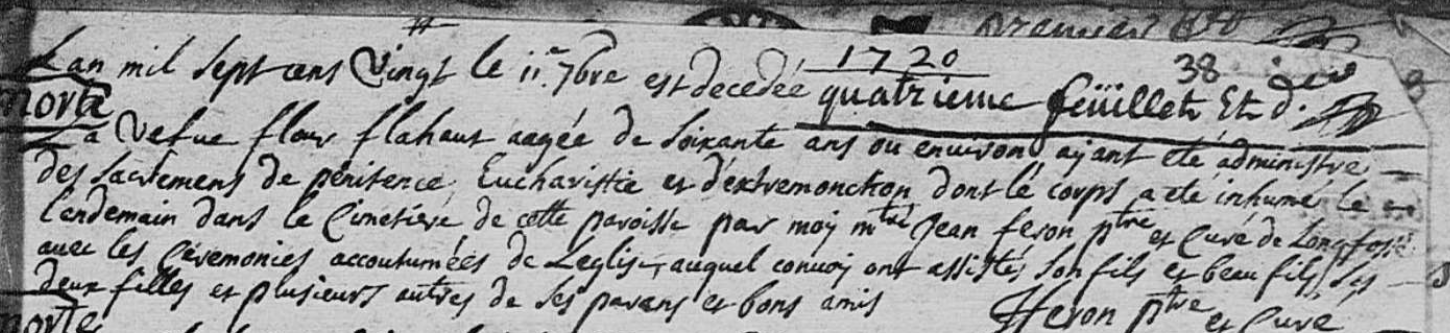 premier
1720
38
quatrieme feüillet Et d.
Lan mil sept cens Vingt le 11e 7bre est decedée
morte
La Vefue flour flahaut aagée de soixante ans ou enuiron ayant été administre
des sacremens de penitence, Eucharistie et d'extremonction dont le corps a eté inhumé le
lendemain dans le Cimetiere de cette paroisse par moy mtre Jean feron ptre et Curé de Longfossé
auec les Ceremonies accoutumées de Leglise, auquel conuoy ont assistés son fils et beau fils, ses
deux filles et plusieurs autres de ses parans et bons amis
JFeron ptre et Curé
morte